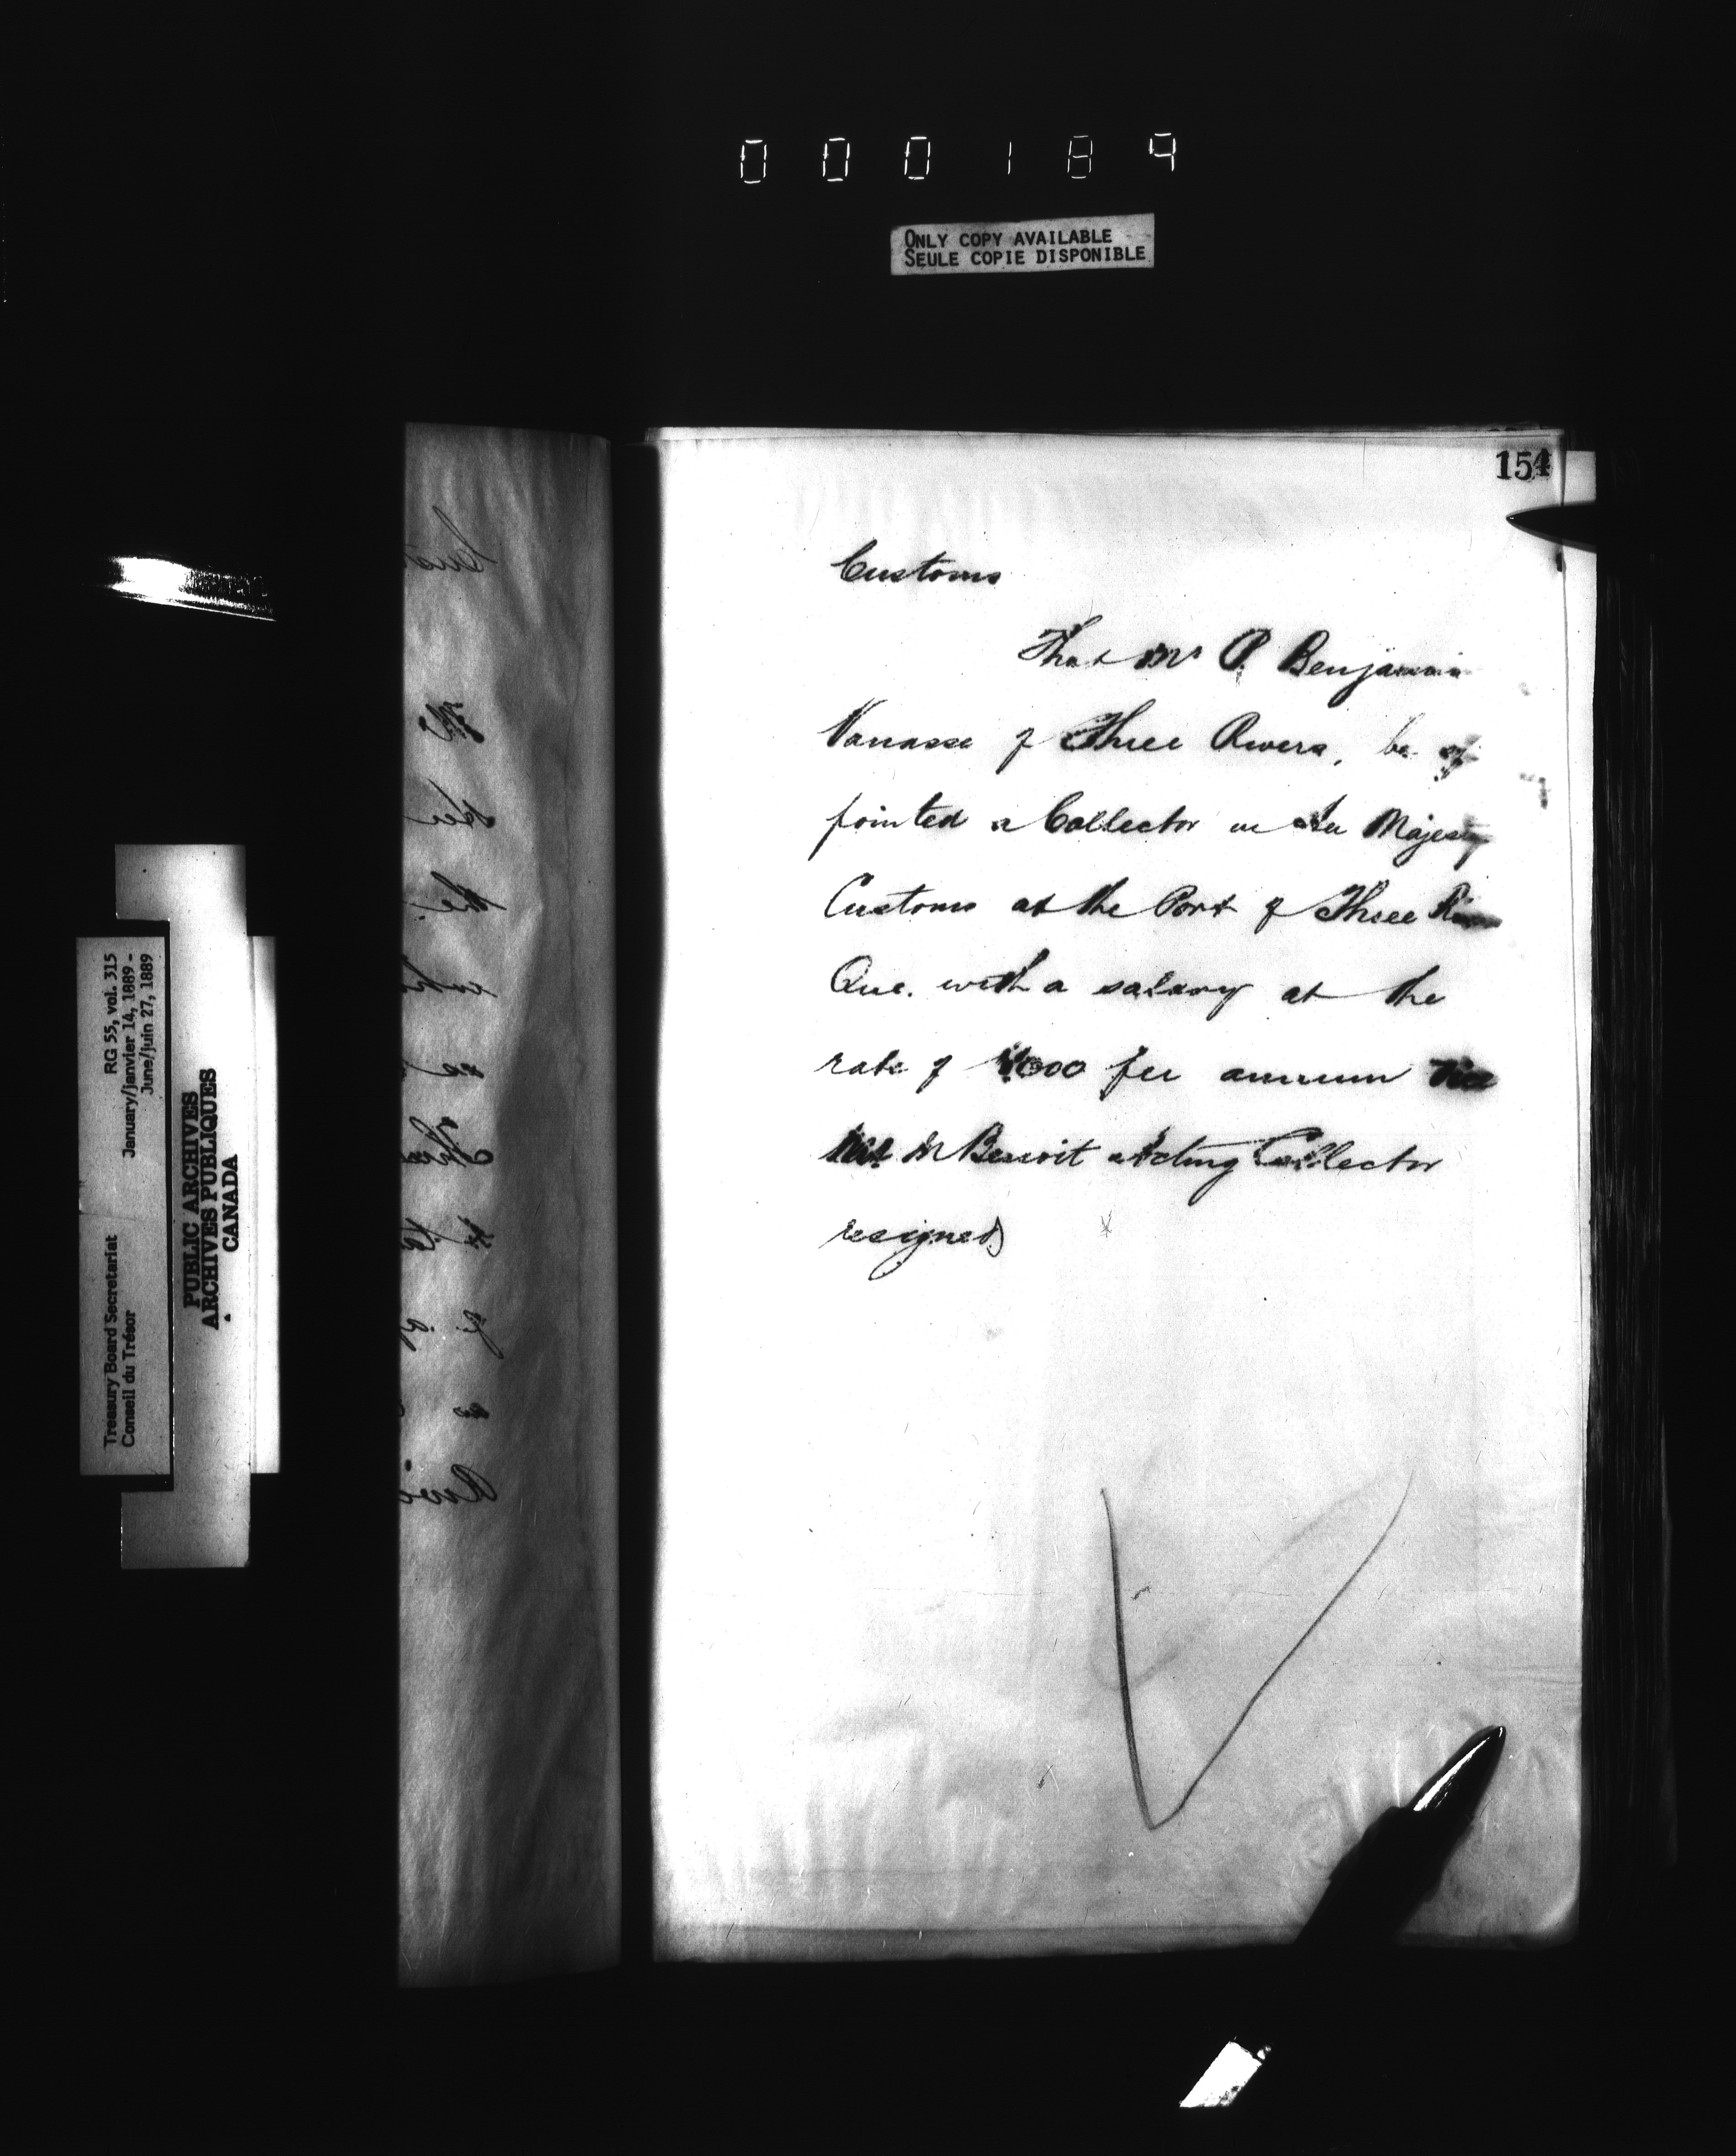 000184
ONLY COPY AVAILABLE
SEULE COPIE DISPONIBLE
154
Customs
That Mr P. Benjamin
Vanasse of Three Rivers, be ap
pointed a Collector in Her Majesty
Customs at the Port of Three
Que. with a salary at the
rate of per annum vice
Mr Benoit acting Collector
resigned
RG 55, vol. 315
January/janvier 14, 1889 -
June/juin 27, 1889
Treasury Board Secretariat
Conseil du Trésor
PUBLIC ARCHIVES
ARCHIVES PUBLIQUES
CANADA